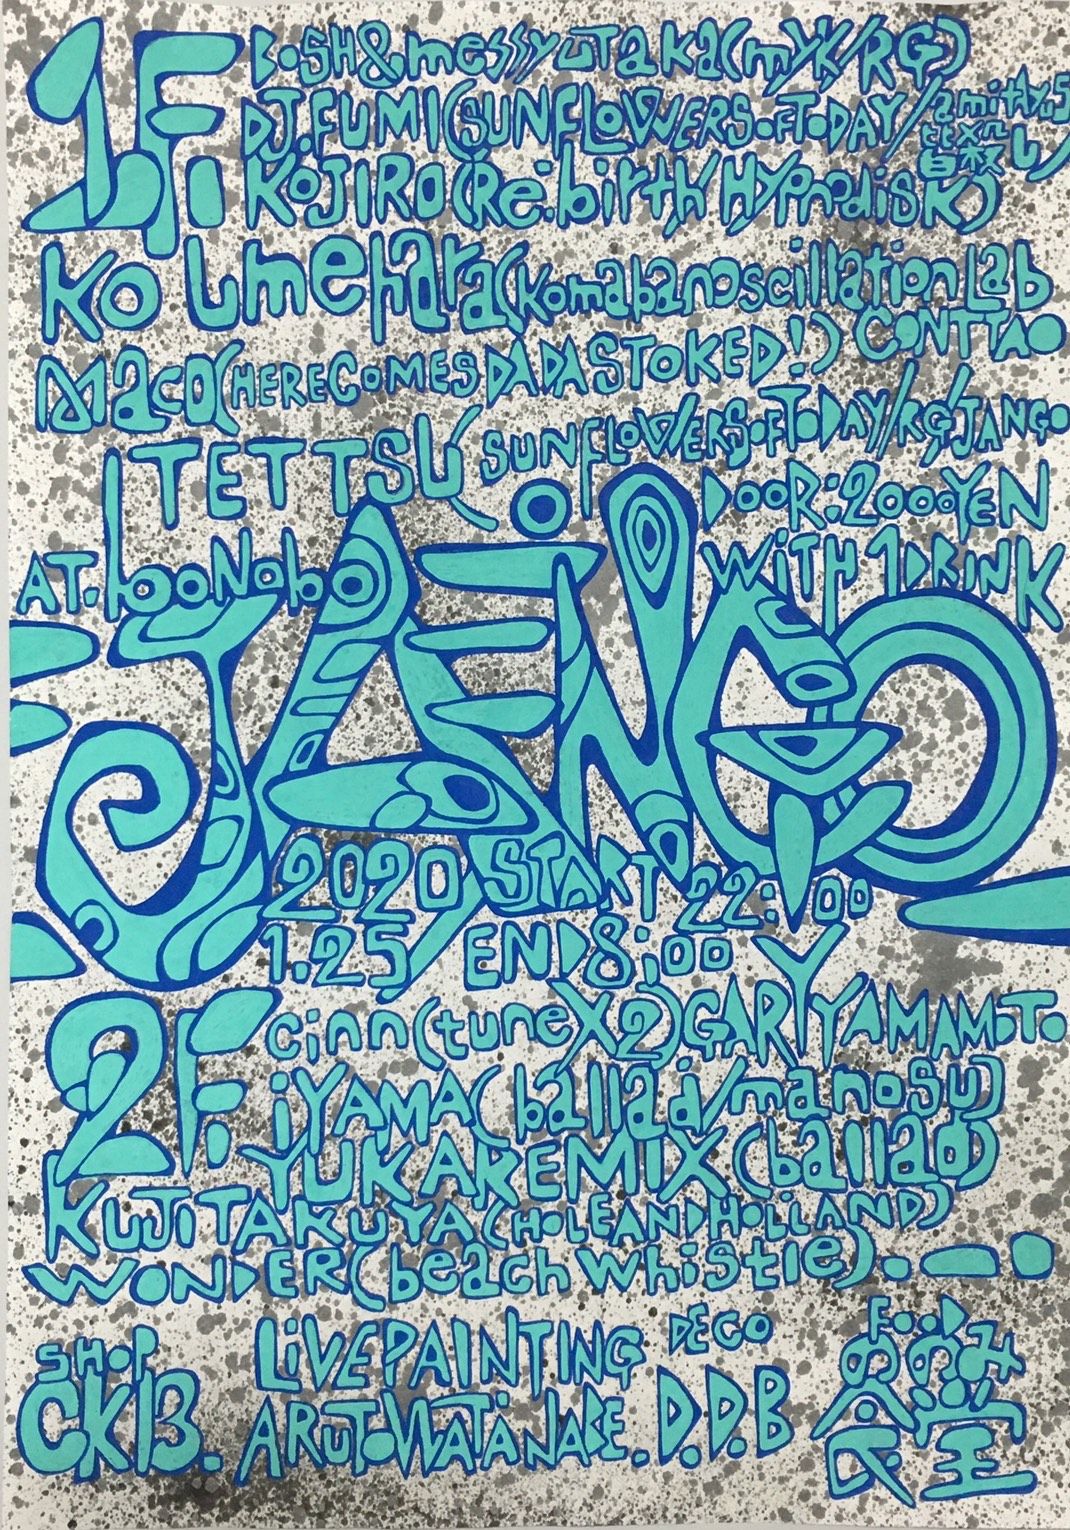 1F:
BoSH&messyuTaKa(myK/RG)
DJ.FUMI(SUNFLOWERSOFTODAY/
KOJIRO(Re:birth/Hypnodisk)
Ko Umehara(Komabanoscillation Lab
MacO(HERECOMESDADASTOKED!) CONTTAO
ITETTSU(SUNFLOWERSOFTODAY/RG/JANGO
DOOR:2000YEN
AT.booNobo
WiTH 1DRINK
JANGO
2020 START 22:00
1.25 END8:00
2F:
cinn(tuneX2)GARYYAMAMOTO
iYAMA(ballad/manosu)
YUKAREMIX(ballad)
KUJITAKUYA(HOLEANDHOLLAND)
WONDER(beach whistle)
SHOP
CK13.
LIVEPAINTING
ARUTOWATANABE.
DECO
D.D.B
FOOD
おのみ
食堂